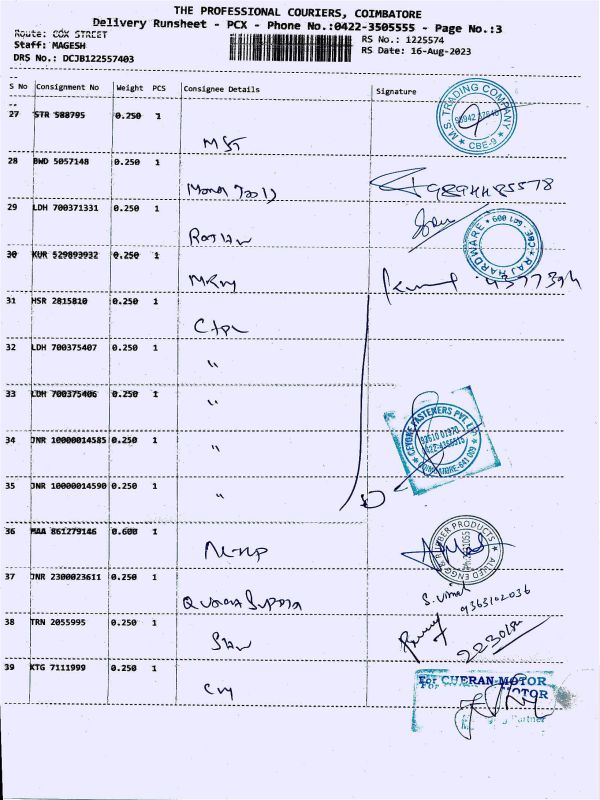 THE PROFESSIONAL COURIERS, COIMBATORE
Delivery Runsheet - PCX - Phone No.:0422-3505555 - Page No.:3
Route: COX STREET
RS No.: 1225574
Staff: MAGESH
RS Date: 16-Aug-2023
DRS No.: DCJB122557403
S No Consignment No Weight PCS Consignee Details Signature
27 STR 588795 0.250 1
M.S. TRADING COMPANY
CBE-9
28 BWD 5057148 0.250 1
9894485578
29 LDH 700371331 0.250 1
RAJ HARDWARE
CBE - 641 009
30 KUR 529893932 0.250 1
31 HSR 2815810 0.250 1
32 LDH 700375407 0.250 1
"
33 LDH 700375406 0.250 1
"
34 JNR 10000014585 0.250 1
"
FASTENERS PVT. LTD
COIMBATORE-641 009
35 JNR 10000014590 0.250 1
"
36 MAA 861279146 0.600 1
ALLIED ENGG & RUBBER PRODUCTS
37 JNR 2300023611 0.250 1
S. Vimal
9363102036
38 TRN 2055995 0.250 1
39 KTG 7111999 0.250 1
For CHERAN MOTOR
MOTOR
Partner